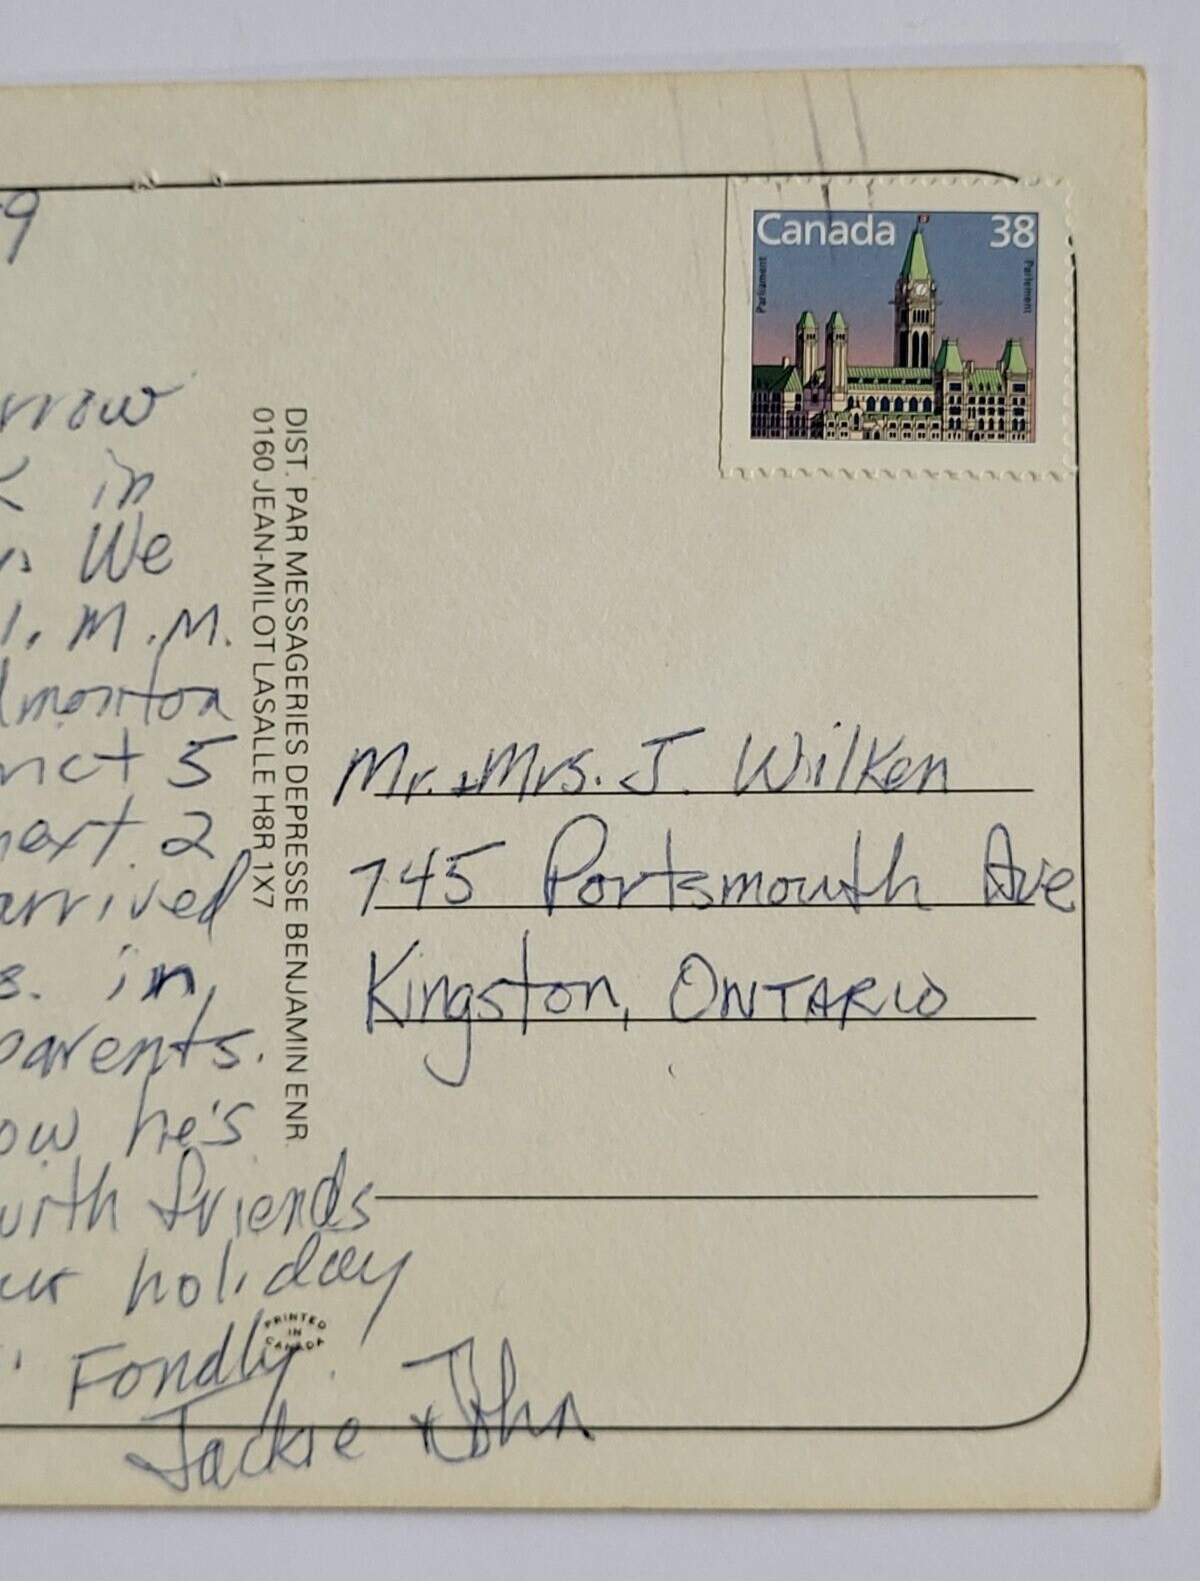 Canada 38
Parliament
Parlement
9
in
We
M.M.
5
next 2
arrived
in
parents.
he's
friends
holiday
Fondly
Jackie + John
DIST. PAR MESSAGERIES DEPRESSE BENJAMIN ENR.
0160 JEAN-MILOT LASALLE H8R 1X7
Mr. + Mrs. J. Wilken
745 Portsmouth Ave
Kingston, ONTARIO
PRINTED
IN
CANADA